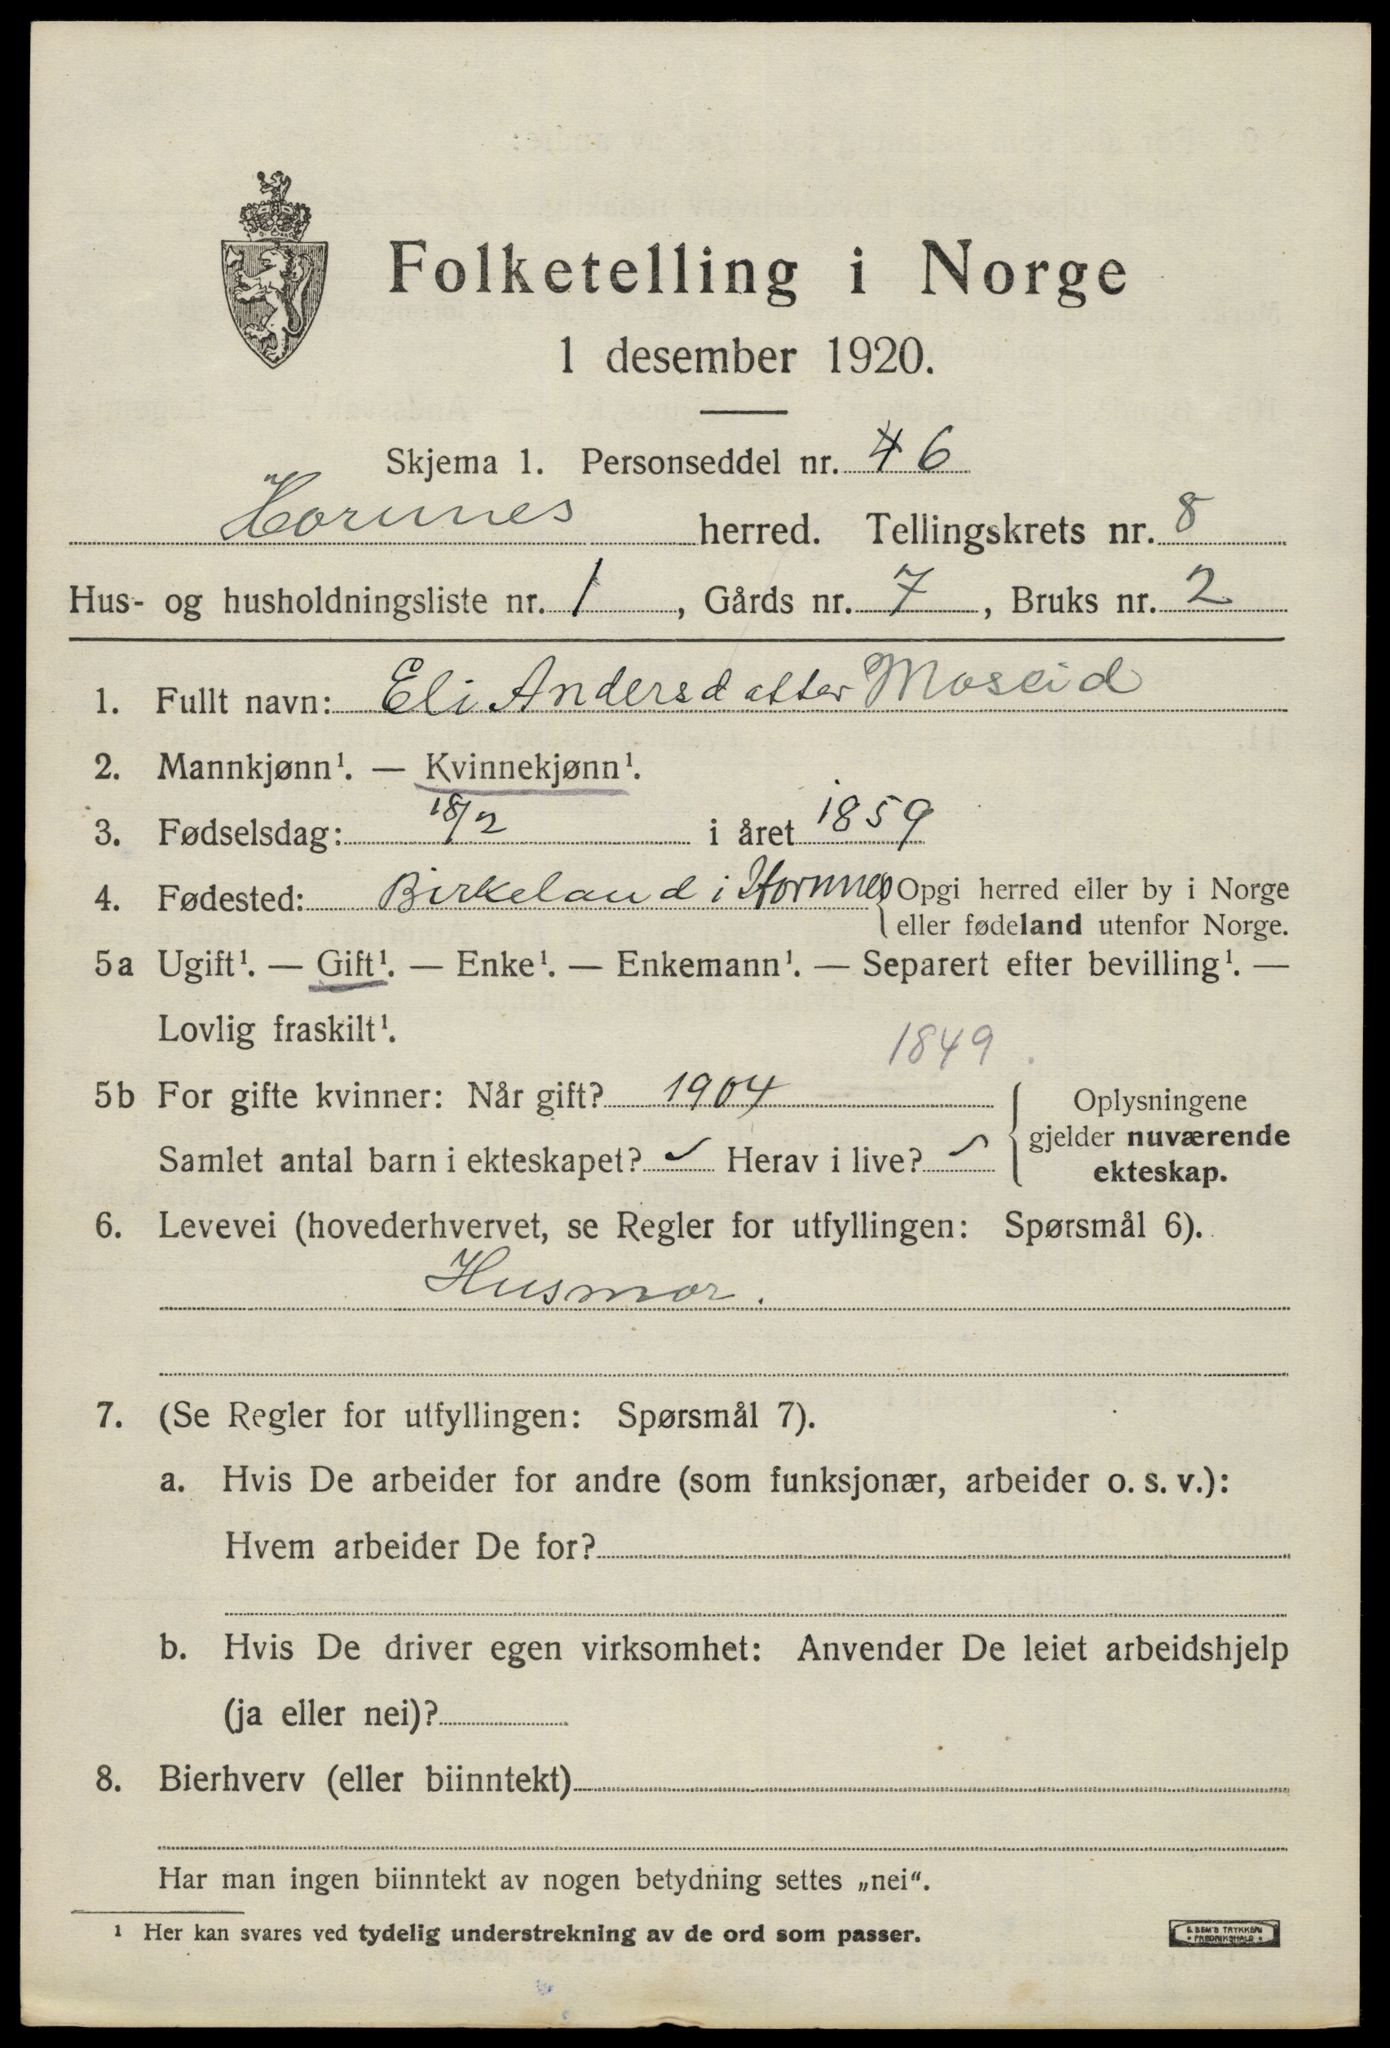 Folketelling i Norge
1 desember 1920.
Skjema 1. Personseddel nr. 46
Hornnes herred. Tellingskrets nr. 8
Hus- og husholdningsliste nr. 1, Gårds nr. 7, Bruks nr. 2
1. Fullt navn: Eli Andersdatter Moseid
2. Mannkjønn¹. — Kvinnekjønn¹.
3. Fødselsdag: 18/2 i året 1859
4. Fødested: Birkeland i Hornnes { Opgi herred eller by i Norge
eller fødeland utenfor Norge.
5a Ugift¹. — Gift¹. — Enke¹. — Enkemann¹. — Separert efter bevilling¹. —
Lovlig fraskilt¹.
1849.
5b For gifte kvinner: Når gift? 1904 { Oplysningene
gjelder nuværende
Samlet antal barn i ekteskapet? ✓ Herav i live? ✓
ekteskap.
6. Levevei (hovederhvervet, se Regler for utfyllingen: Spørsmål 6).
Husmor.
7. (Se Regler for utfyllingen: Spørsmål 7).
a. Hvis De arbeider for andre (som funksjonær, arbeider o. s. v.):
Hvem arbeider De for?
b. Hvis De driver egen virksomhet: Anvender De leiet arbeidshjelp
(ja eller nei)?
8. Bierhverv (eller biinntekt)
Har man ingen biinntekt av nogen betydning settes „nei“.
¹ Her kan svares ved tydelig understrekning av de ord som passer.
E. SEM'S TRYKKERI
FREDRIKSHALD